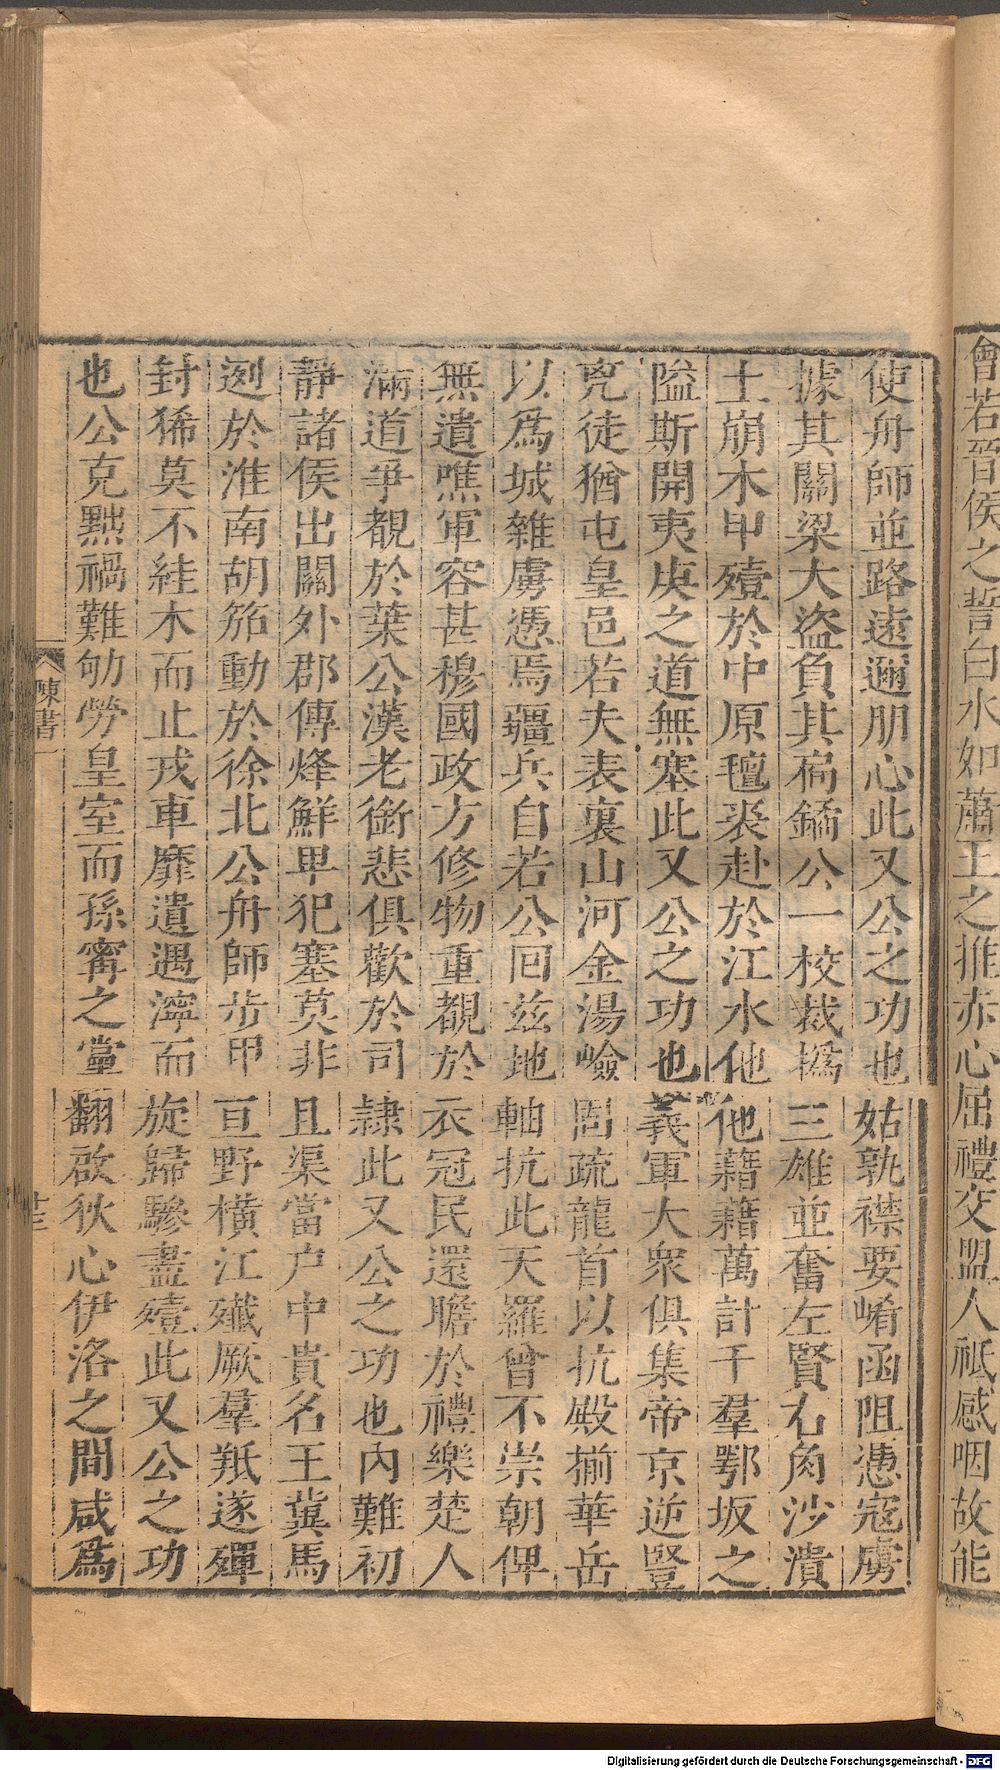 會若晉侯之誓白水如蕭王之推赤心屈禮交盟人祇感咽故能
使舟師並路遠邇朋心此又公之功也姑孰襟要崤函阻憑寇虜
據其關梁大盜負其扃鐍公一校裁撝三雄並奮左賢右角沙潰
土崩木甲殪於中原氊裘赴於江水他他籍籍萬計千羣鄂坂之
隘斯開夷庚之道無塞此又公之功也義軍大衆俱集帝京逆豎
兇徒猶屯皇邑若夫表裏山河金湯嶮固疏龍首以抗殿揃華岳
以爲城雜虜憑焉疆兵自若公回茲地軸抗此天羅曾不崇朝俾
無遺噍軍容甚穆國政方修物重覩於衣冠民還瞻於禮樂楚人
滿道爭覩於葉公漢老銜悲俱歡於司隸此又公之功也內難初
靜諸侯出關外郡傳烽鮮卑犯塞莫非且渠當户中貴名王冀馬
迾於淮南胡笳動於徐北公舟師步甲亘野橫江殲厥羣羝遂殫
封狶莫不絓木而止戎車靡遺遇濘而旋歸驂盡殪此又公之功
也公克黜禍難劬勞皇室而孫甯之黨翻啟狄心伊洛之間咸爲
陳書一
廿三
Digitalisierung gefördert durch die Deutsche Forschungsgemeinschaft - DFG